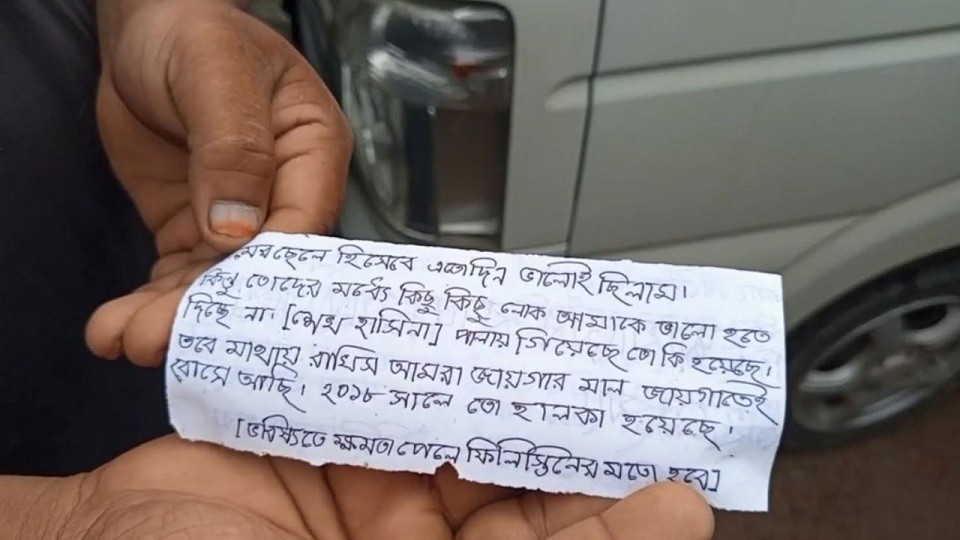 মেরছেলে হিসেবে এতোদিন ভালোই ছিলাম।
কিন্তু তোদের মধ্যে কিছু কিছু লোক আমাকে ভালো হতে
দিচ্ছে না। [শেখ হাসিনা] পালায় গিয়েছে তো কি হয়েছে।
তবে মাথায় রাখিস আমরা জায়গার মাল জায়গাতেই
বোসে আছি। ২০১৮ সালে তো হালকা হয়েছে।
[ভবিষ্যিতে ক্ষমতা পেলে ফিলিস্তিনের মতো হবে]